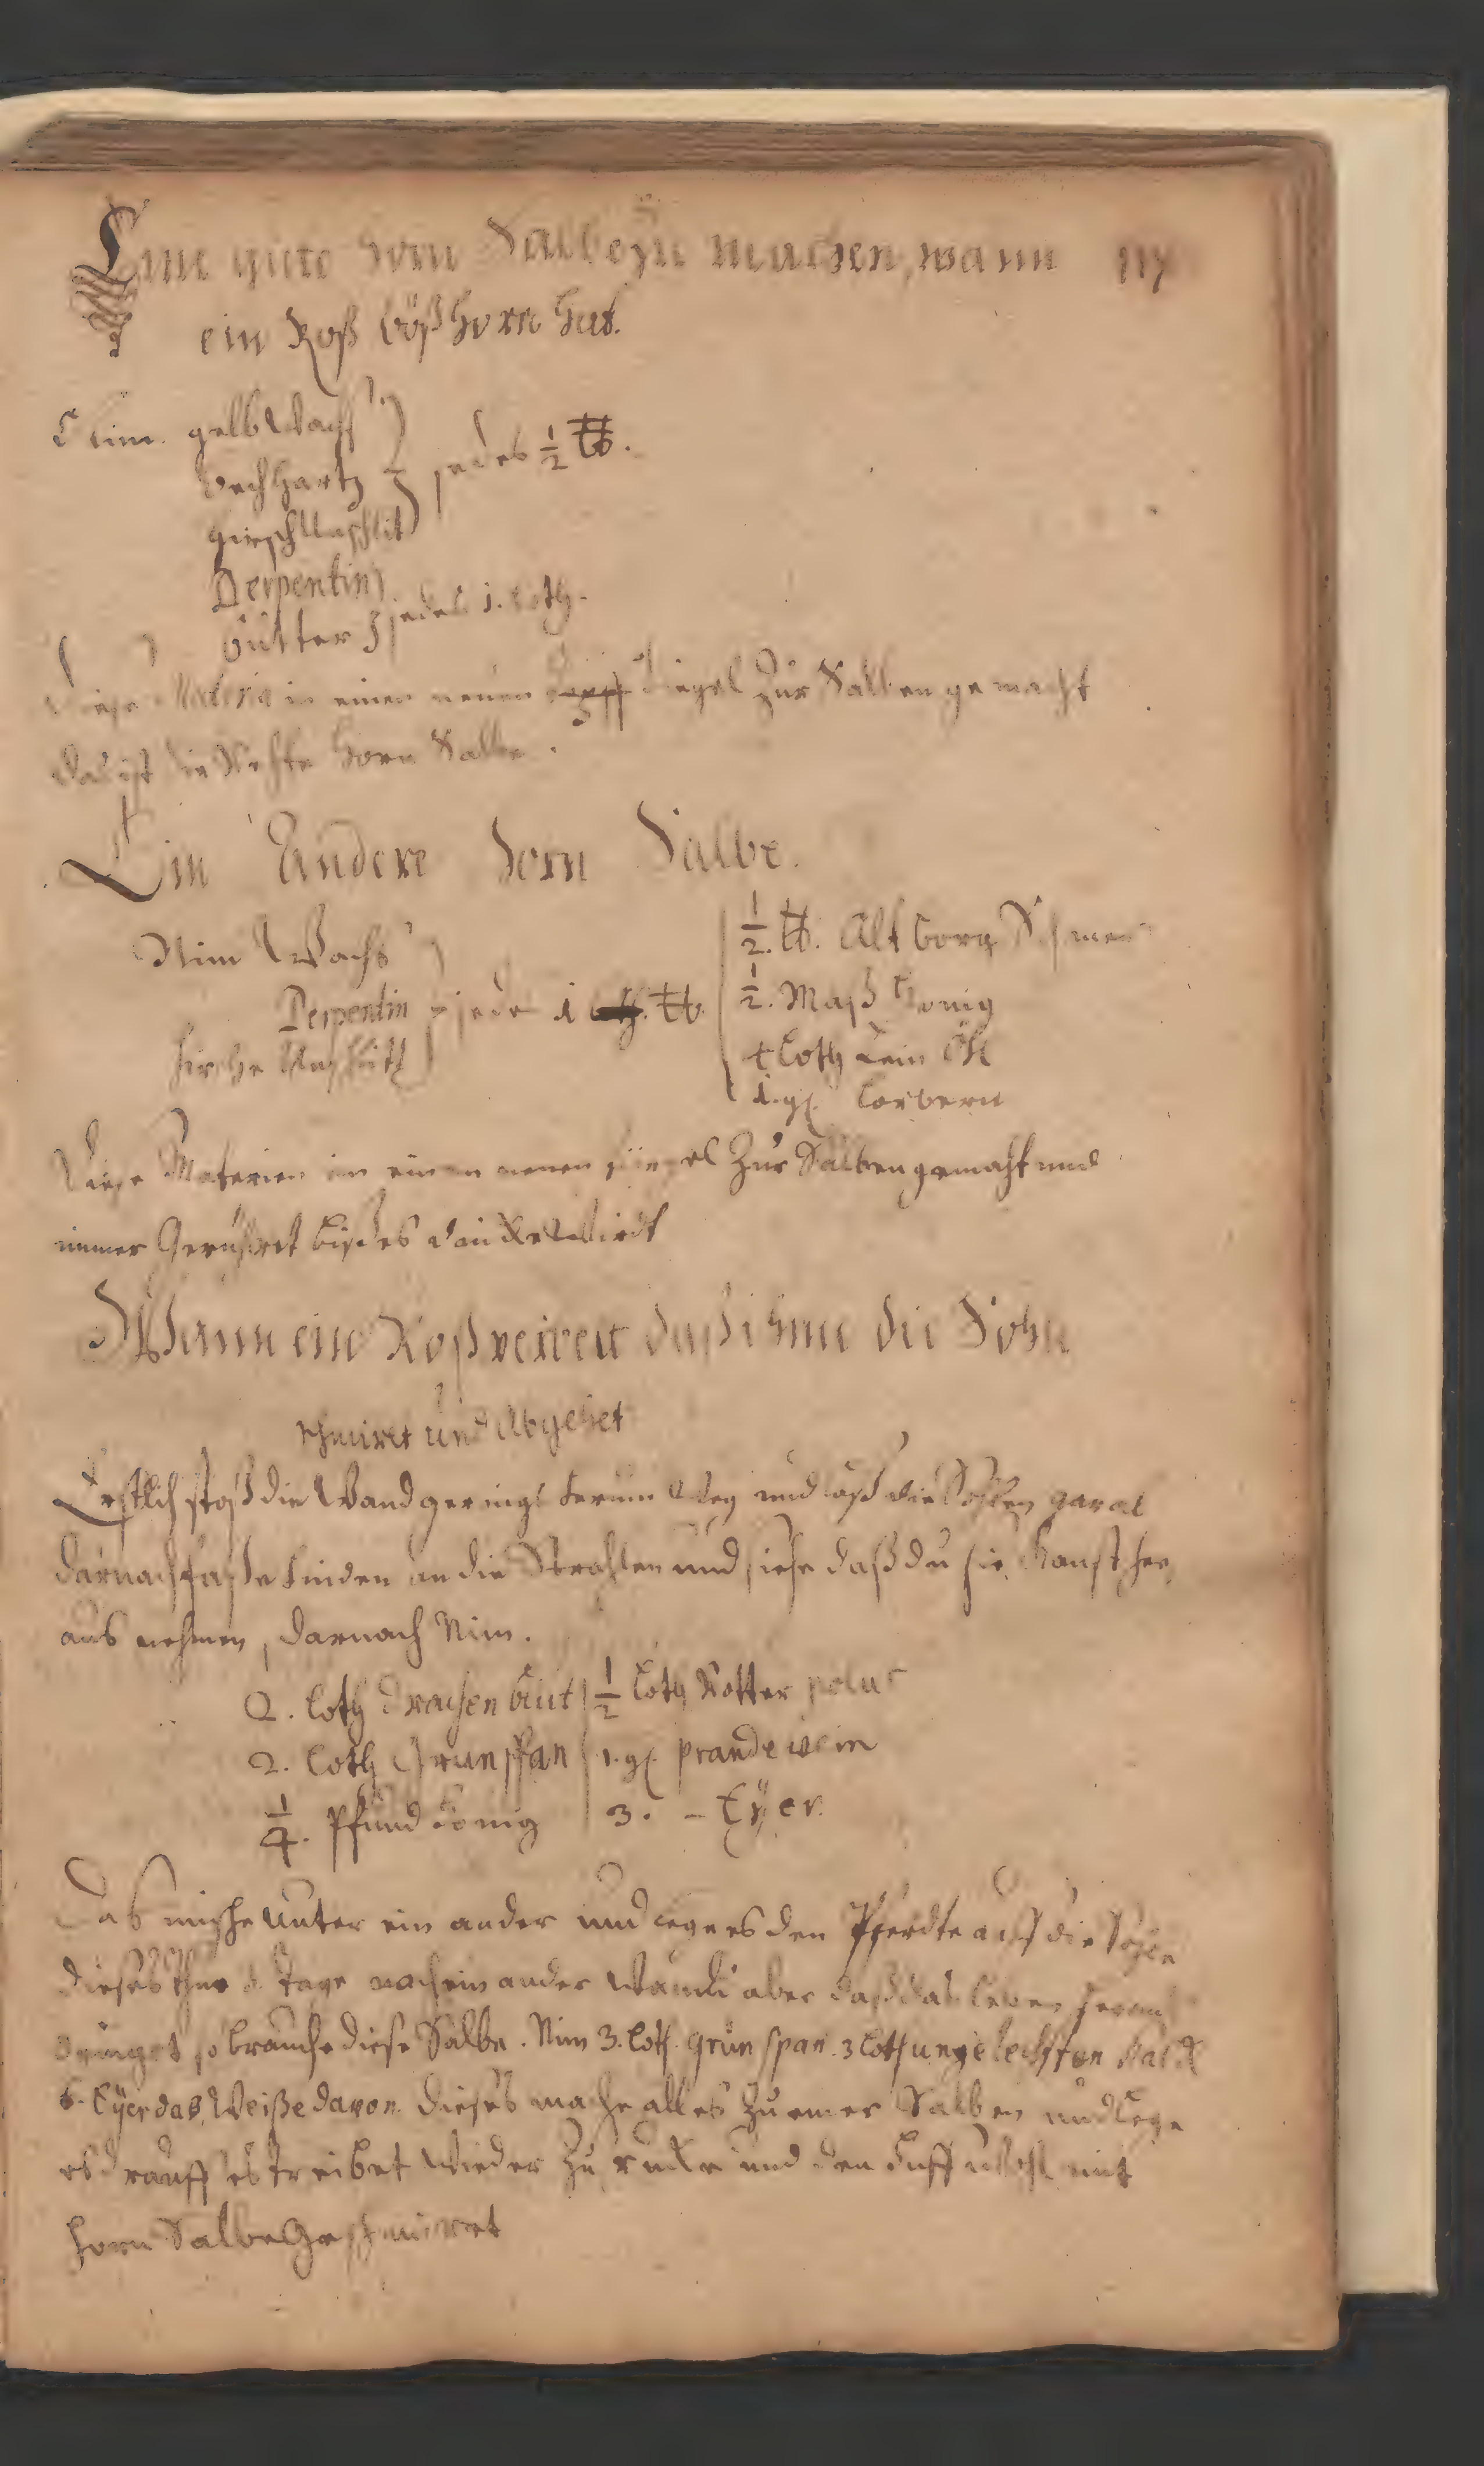 Eine gute Horn Salbe zu machen, wann
ein Roß böß Horn hat.
Nim. gelb Wachs
Pech Hartz } jedes ½ ℔.
Hirsch Unschlit
Terpentin
Butter } jedes 1. Loth.
Diese Materia in einen neuen Tiegel Zur Salben gemacht
das ist die Beste Horn Salbe.
Ein Andere Horn Salbe.
Nim Wachs
Terpentin } jede 1 ℔.
Hirsche Unschlitt
½ ℔. Alt Borg Schmer
½. Maß Honig
4 Loth Lein Öhl
1. gl. Lorbern
Diese Materien in einen neuen Tiegel Zur Salben gemacht und
immer Gerühret biß es dicke Wirdt
Wann ein Roß verireit daß ihme die Sohn
schwiret und Abgehet
Erstlich stoß die Wand gerings herum Weg und laß die Sohlen gar al
darnach fasse hinden an die Strahlen und siehe daß du sie kanst her
aus nehmen, darnach Nim.
2. Loth Drachen blut | ½ Loth Rotter polus
2. Loth Grünspan | 1. gl. prandewein
¼. Pfund Honig | 3. – Eÿer.
Das mische unter ein ander und lege es den Pferdte auff die Sohle
dieses thue 3. Tage nach ein ander Wann aber daß das leben heraus
dringet so brauche diese Salbe. Nim 3. Loth. Grün span. 3 Loth ungelechten Kalck
6. Eÿer das Weiße davon. Dieses mache alles zu einer Salben und lege
es drauff es treibet Wieder zu rucke und den Huff wohl mit
Horn Salbe Geschmieret